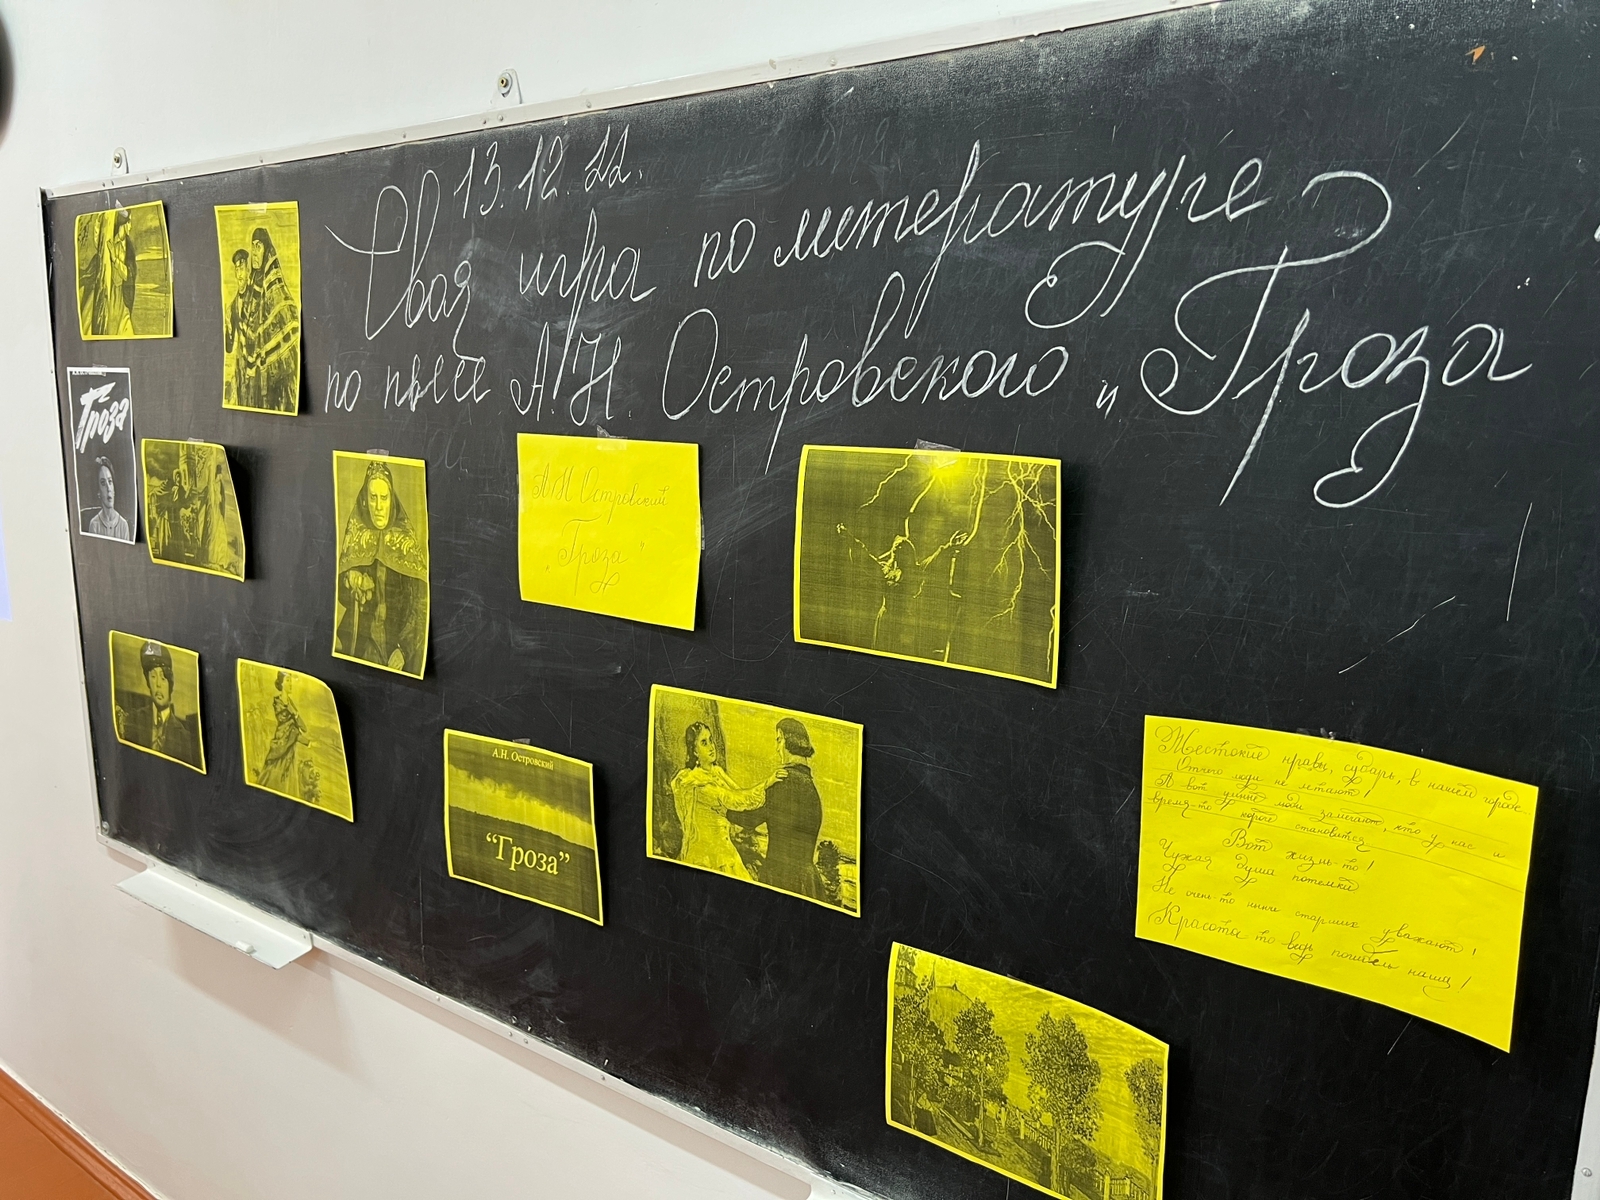 13.12.22.
Своя игра по литературе
по пьесе А.Н. Островского „Гроза
Гроза
А.Н Островский
„Гроза"
А.Н. Островский
“Гроза”
Жестокие нравы, сударь, в нашем городе
Отчего люди не летают!
А вот умные люди замечают, что у нас и
время-то короче становится
Вот жизнь-то!
Чужая душа потемки
Не очень-то нынче старших уважают!
Красота то ведь погибель наша!